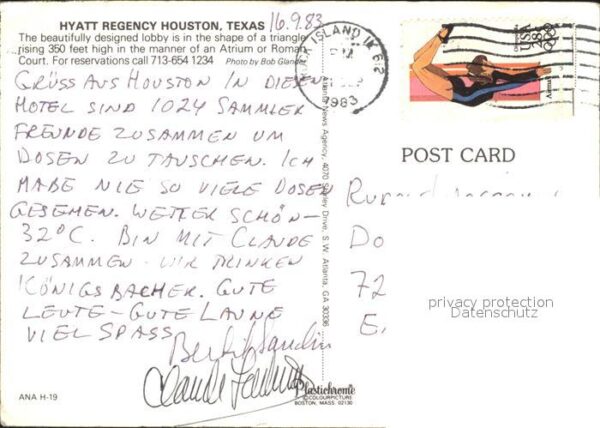 HYATT REGENCY HOUSTON, TEXAS 16.9.83
The beautifully designed lobby is in the shape of a triangle
rising 350 feet high in the manner of an Atrium or Roman
Court. For reservations call 713-654 1234 Photo by Bob Glander
GRÜSS AUS HOUSTON IN DIESEM
HOTEL SIND 1024 SAMMLER
FREUNDE ZUSAMMEN UM
DOSEN ZU TAUSCHEN. ICH
HABE NIE SO VIELE DOSEN
GESEHEN. WETTER SCHÖN-
32°C. BIN MIT CLAUDE
ZUSAMMEN. WIR TRINKEN
KÖNIGSBACHER. GUTE
LEUTE-GUTE LAUNE
VIEL SPASS
Claude
ANA H-19
Plastichrome
©COLOURPICTURE
BOSTON, MASS. 02130
Atlanta News Agency, 4070 Shirley Drive, S.W. Atlanta, GA 30336
ISLAND
1983
USA
28c
POST CARD
Do
72
E
privacy protection
Datenschutz